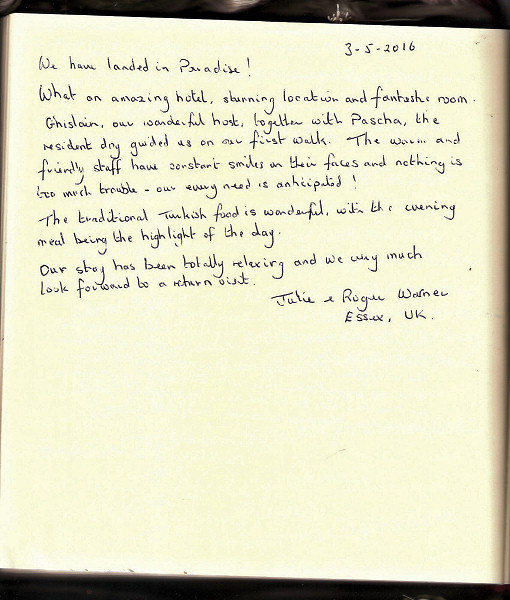 3-5-2016
We have landed in Paradise!
What an amazing hotel, stunning location and fantastic room.
Ghislain, our wonderful host, together with Pascha, the
resident dog guided us on our first walk. The warm and
friendly staff have constant smiles on their faces and nothing is
too much trouble - our every need is anticipated!
The traditional Turkish food is wonderful, with the evening
meal being the highlight of the day.
Our stay has been totally relaxing and we very much
look forward to a return visit.
Julie & Roger Warner
Essex, UK.